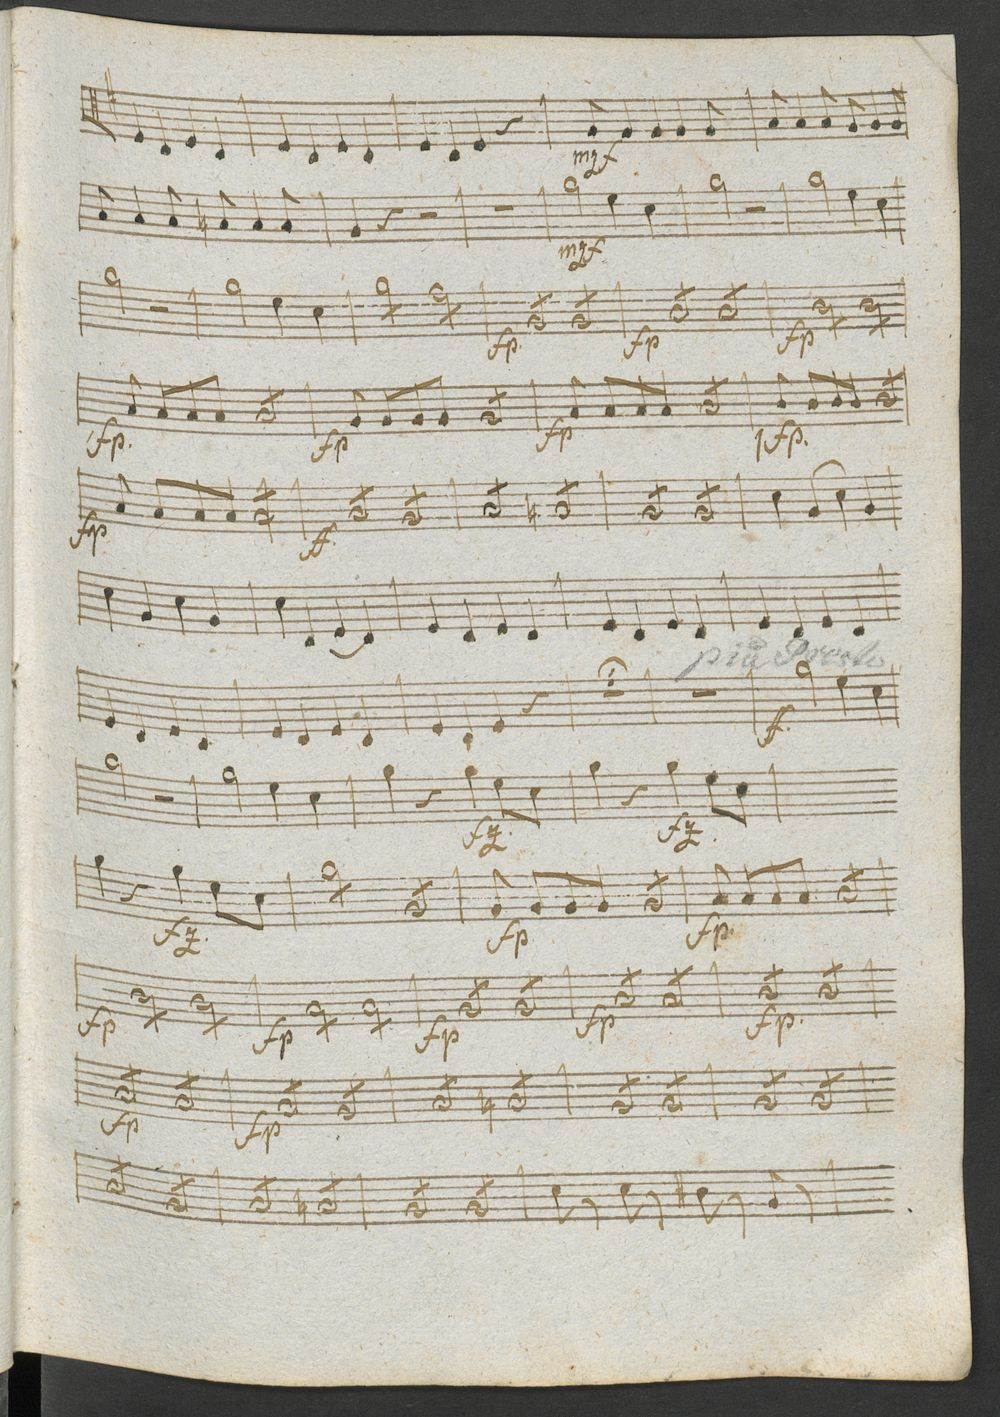 mgf
mgf
fp. fp fp
fp. fp fp fp.
fp ff.
più Presto
f.
fz. fz.
fz. fp fp.
fp fp fp fp fp.
fp fp